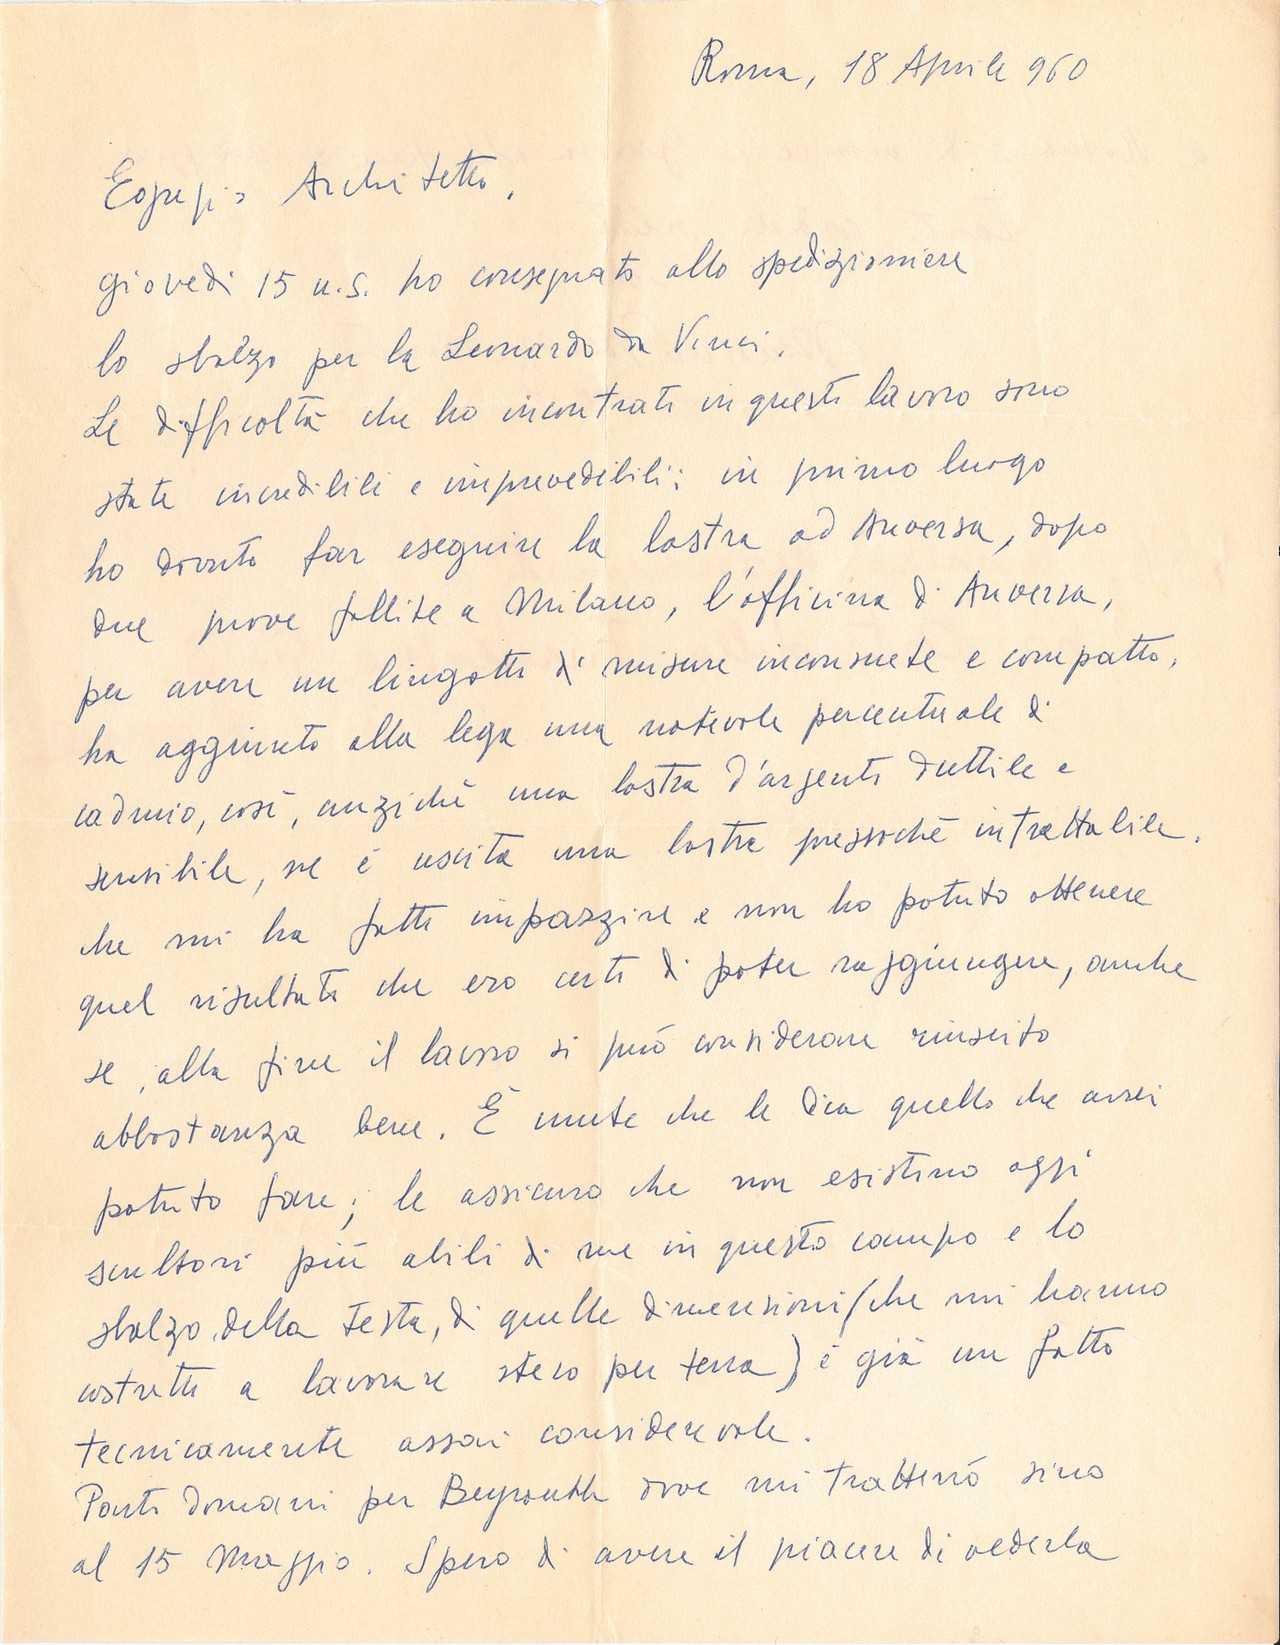 Roma, 18 Aprile 960
Egregio Architetto,
giovedì 15 u.s. ho consegnato allo spedizioniere
lo sbalzo per la Leonardo da Vinci.
Le difficoltà che ho incontrato in questo lavoro sono
state incredibili e imprevedibili: in primo luogo
ho dovuto far eseguire la lastra ad Anversa, dopo
due prove fallite a Milano, l'officina di Anversa,
per avere un lingotto di misure inconsuete e compatto,
ha aggiunto alla lega una notevole percentuale di
cadmio, così, anziché una lastra d'argento duttile e
sensibile, ne è uscita una lastra pressoché intrattabile.
che mi ha fatto impazzire e non ho potuto ottenere
quel risultato che ero certo di poter raggiungere, anche
se, alla fine il lavoro si può considerare riuscito
abbastanza bene. È inutile che le dica quello che avrei
potuto fare; le assicuro che non esistono oggi
scultori più abili di me in questo campo e lo
sbalzo della testa, di quelle dimensioni (che mi hanno
costretto a lavorare steso per terra) è già un fatto
tecnicamente assai considerevole.
Parto domani per Beyrouth dove mi tratterrò sino
al 15 Maggio. Spero di avere il piacere di vederla